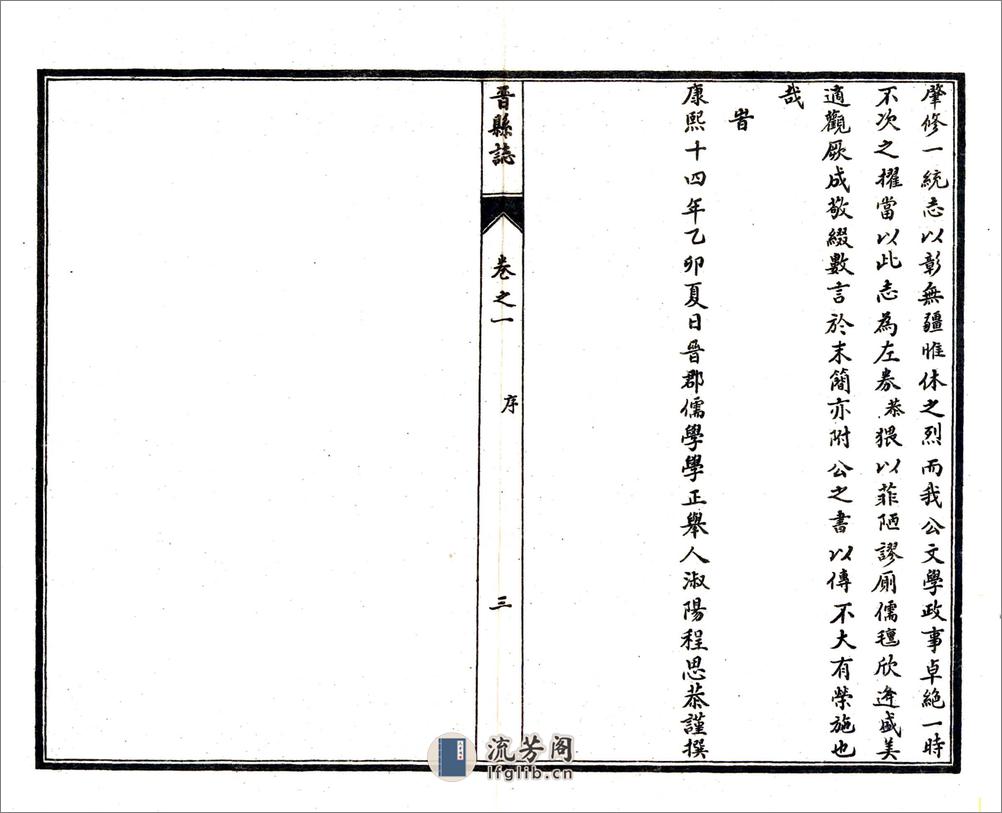 肇修一統志以彰無疆惟休之烈而我公文學政事卓絶一時
不次之擢當以此志為左券恭猥以菲陋謬厠儒氊欣逢盛美
適觀厥成敬綴數言於末簡亦附公之書以傳不大有榮施也
哉
旹
康熙十四年乙卯夏日晉郡儒學學正舉人淑陽程思恭謹撰
晉縣誌
卷之一
序
三
流芳阁
lfglib.cn